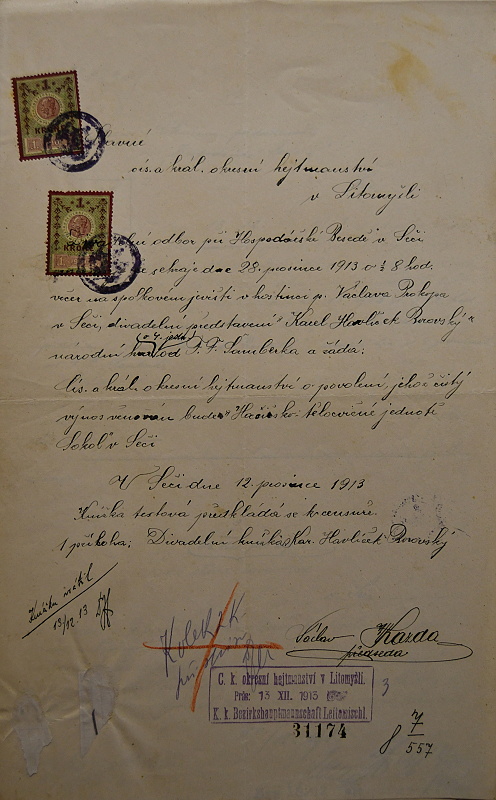 1
KR
1
KR
Slavné
cís. a král. okresní hejtmanství
v Litomyšli
odbor při Hospodářské Besedě v Seči
sehraje dne 28. prosince 1913 o ½ 8 hod.
večer na spolkovém jevišti v hostinci p. Václava Prokopa
v Seči, divadelní představení "Karel Havlíček Borovský"
o 4. jedn.
národní od J. F. Šamberka a žádá;
Cís. a král. okresní hejtmanství o povolení, jehož čistý
výnos věnován bude "Hasičsko-tělocvičné jednotě
Sokol" v Seči
V Seči dne 12. prosince 1913
Knížka textová předkládá se k censuře.
1 příloha; Divadelní knížka Kar. Havlíček Borovský
Knížku vrátil
13/12 13
Kolek K
Václav Karda
předseda
C. k. okresní hejtmanství v Litomyšli.
Präs: 13 XII. 1913
K. k. Bezirkshauptmannschaft Leitomischl.
3
31174
8 7/557